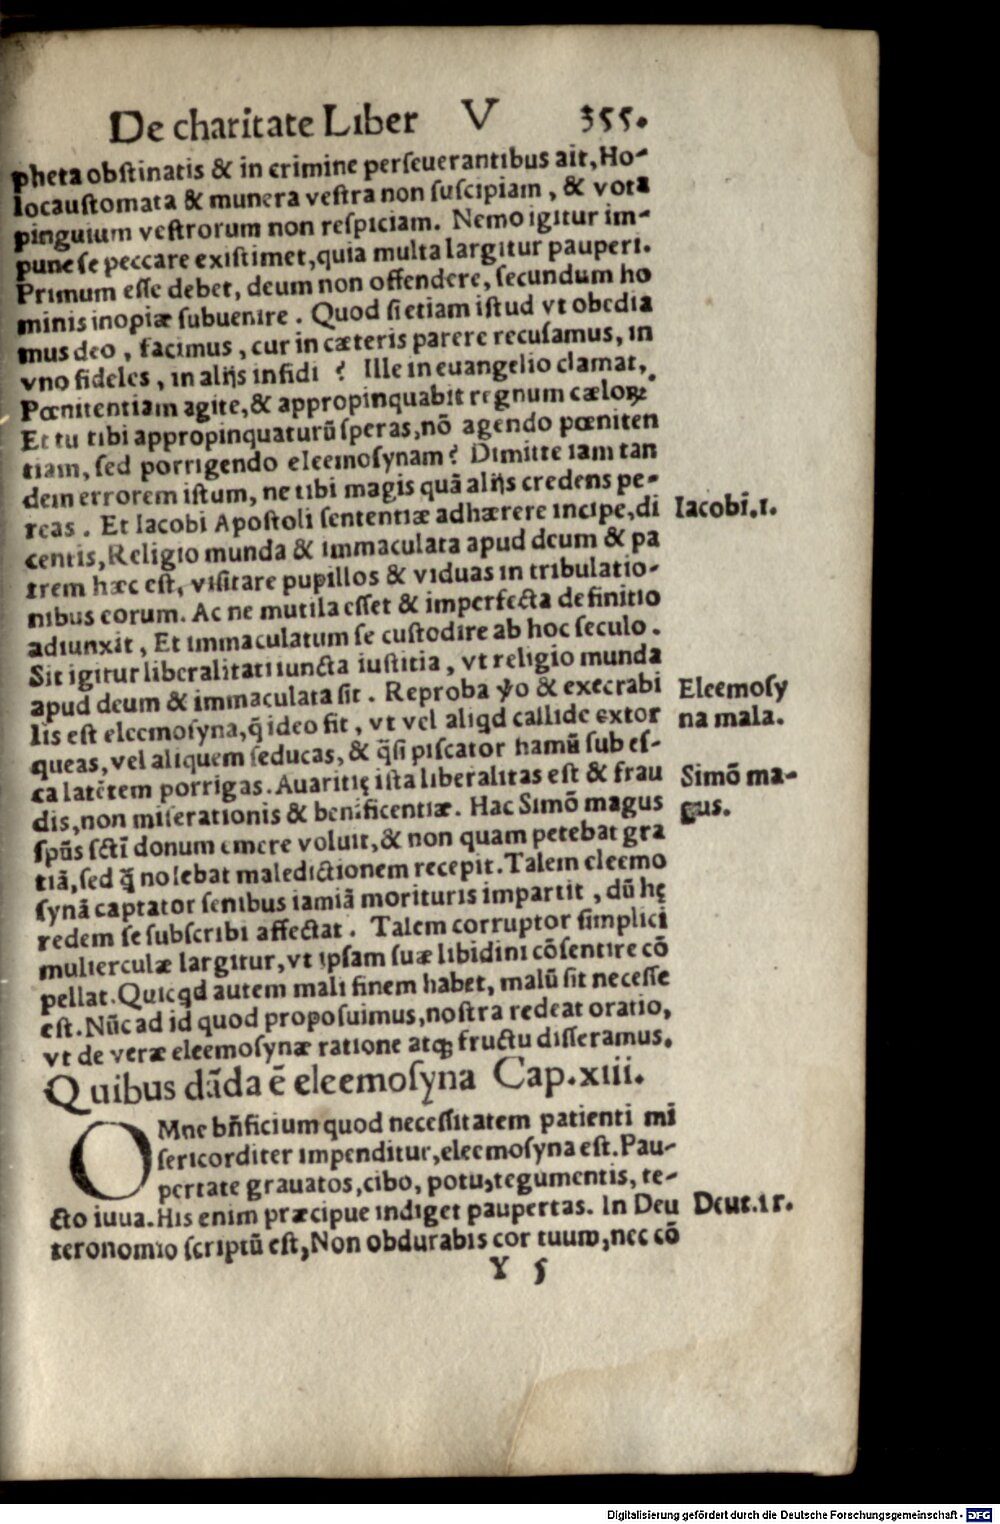 De charitate Liber V 355.
pheta obſtinatis & in crimine perſeuerantibus ait, Ho-
locauſtomata & munera veſtra non ſuſcipiam, & vota
pinguium veſtrorum non reſpiciam. Nemo igitur im-
pune ſe peccare exiſtimet, quia multa largitur pauperi.
Primum eſſe debet, deum non offendere, ſecundum ho
minis inopiæ ſubuenire. Quod ſi etiam iſtud vt obedia
mus deo, facimus, cur in cæteris parere recuſamus, in
vno fideles, in alijs infidi? Ille in euangelio clamat,
Pœnitentiam agite, & appropinquabit regnum cæloꝝ
Et tu tibi appropinquaturũ ſperas, nõ agendo pœniten
tiam, ſed porrigendo eleemoſynam? Dimitte iam tan
dem errorem iſtum, ne tibi magis quã alijs credens pe-
reas. Et Iacobi Apoſtoli ſententiæ adhærere incipe, di
Iacobi.1.
centis, Religio munda & immaculata apud deum & pa
trem hæc eſt, viſitare pupillos & viduas in tribulatio-
nibus eorum. Ac ne mutila eſſet & imperfecta definitio
adiunxit, Et immaculatum ſe cuſtodire ab hoc ſeculo.
Sit igitur liberalitati iuncta iuſtitia, vt religio munda
apud deum & immaculata ſit. Reproba ṽo & execrabi
Eleemoſy
lis eſt eleemoſyna, q̃ ideo fit, vt vel aliqd callide extor
na mala.
queas, vel aliquem ſeducas, & q̃ſi piſcator hamũ ſub eſ-
ca latẽtem porrigas. Auaritię iſta liberalitas eſt & frau
Simõ ma-
dis, non miſerationis & benificentiæ. Hac Simõ magus
gus.
ſpũs ſctĩ donum emere voluit, & non quam petebat gra
tiã, ſed q̃ nolebat maledictionem recepit. Talem eleemo
ſynã captator ſenibus iamiã morituris impartit, dũ hę
redem ſe ſubſcribi affectat. Talem corruptor ſimplici
mulierculæ largitur, vt ipſam ſuæ libidini cõſentire cõ
pellat. Quicqd autem mali finem habet, malũ ſit neceſſe
eſt. Nũc ad id quod propoſuimus, noſtra redeat oratio,
vt de veræ eleemoſynæ ratione atqꝫ fructu differamus.
Quibus dãda ẽ eleemoſyna Cap.xiii.
OMne bñficium quod neceſſitatem patienti mi
ſericorditer impenditur, eleemoſyna eſt. Pau-
pertate grauatos, cibo, potu, tegumentis, te-
cto iuua. His enim præcipue indiget paupertas. In Deu
Deut.15.
teronomio ſcriptũ eſt, Non obdurabis cor tuum, nec cõ
Y 5
Digitalisierung gefördert durch die Deutsche Forschungsgemeinschaft - DFG